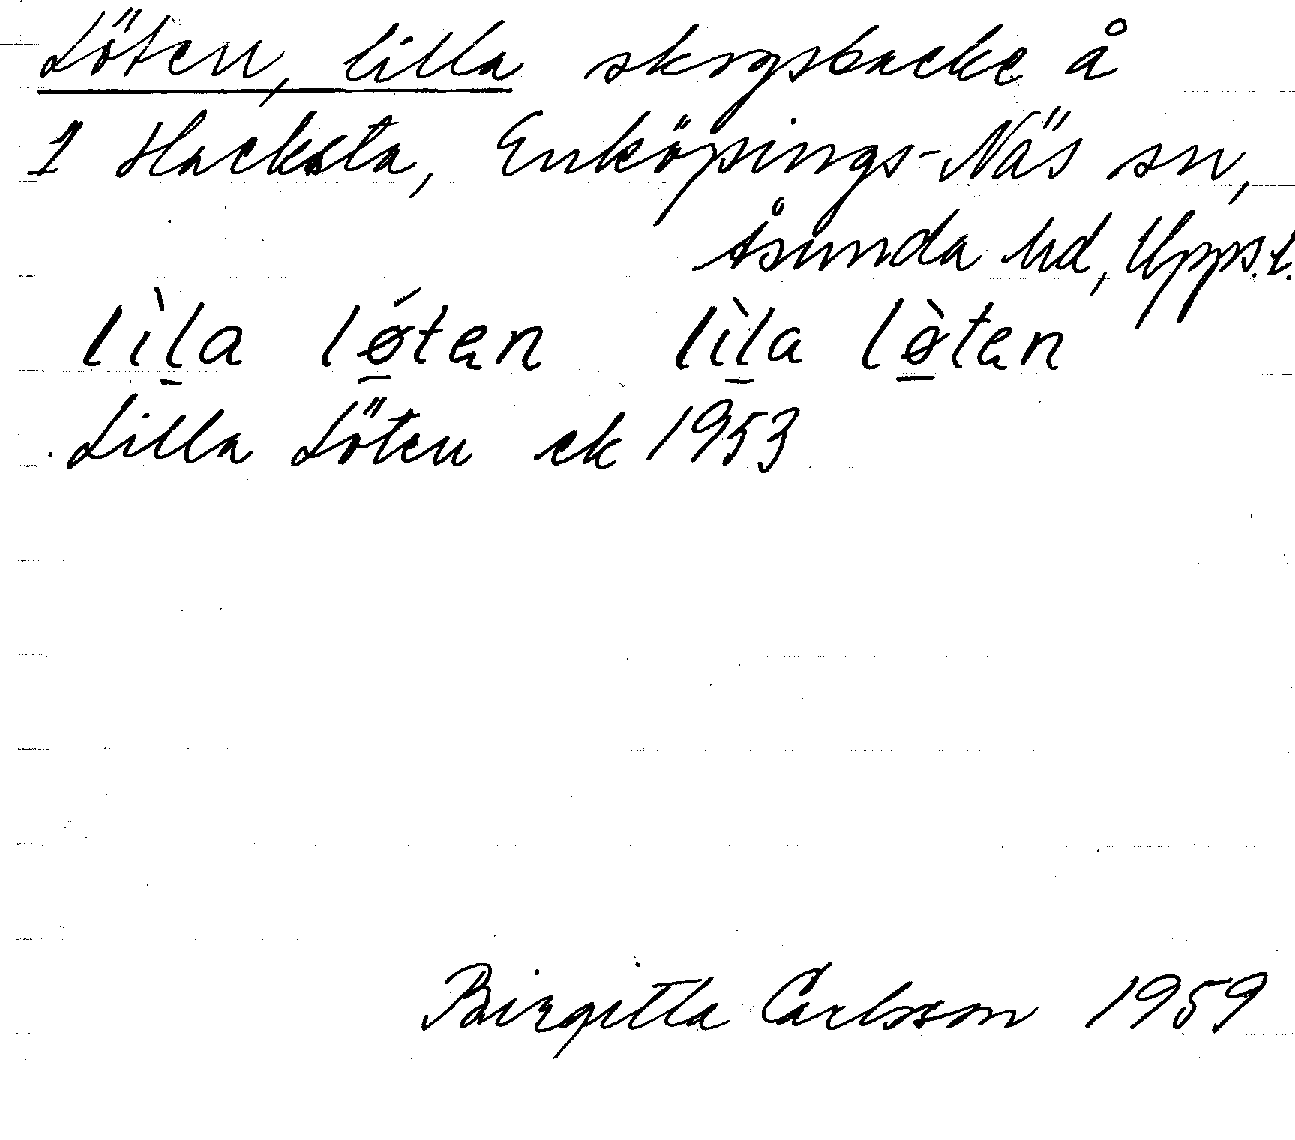 Löten, lilla skogsbacke å
1 Hacksta, Enköpings-Näs sn,
Åsunda hd, Upps.l.
lìl̲a lǿ̲tan lìl̲a lø̲̀tan
Lilla Löten ek 1953
Birgitta Carlsson 1959